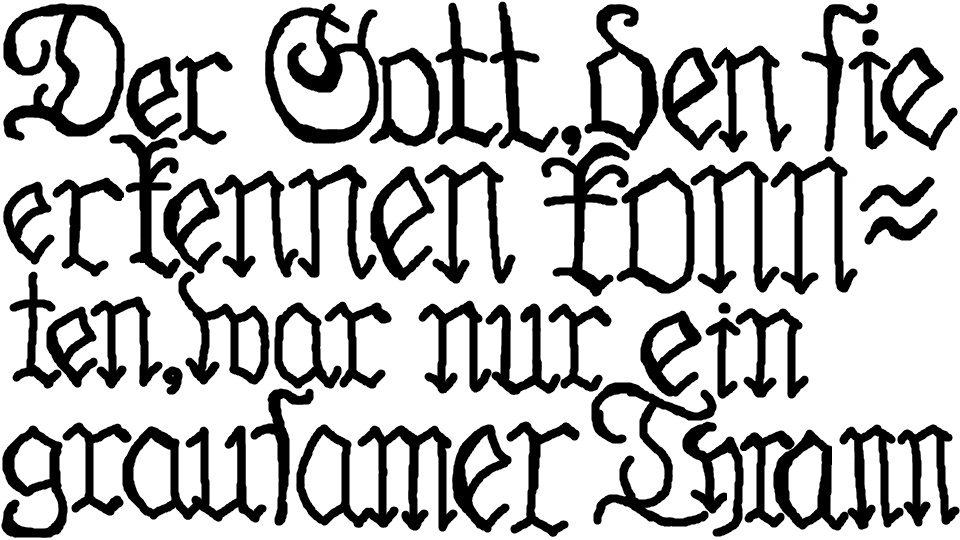 Der Gott, den sie
erkennen konn=
ten, war nur ein
grausamer Tyrann